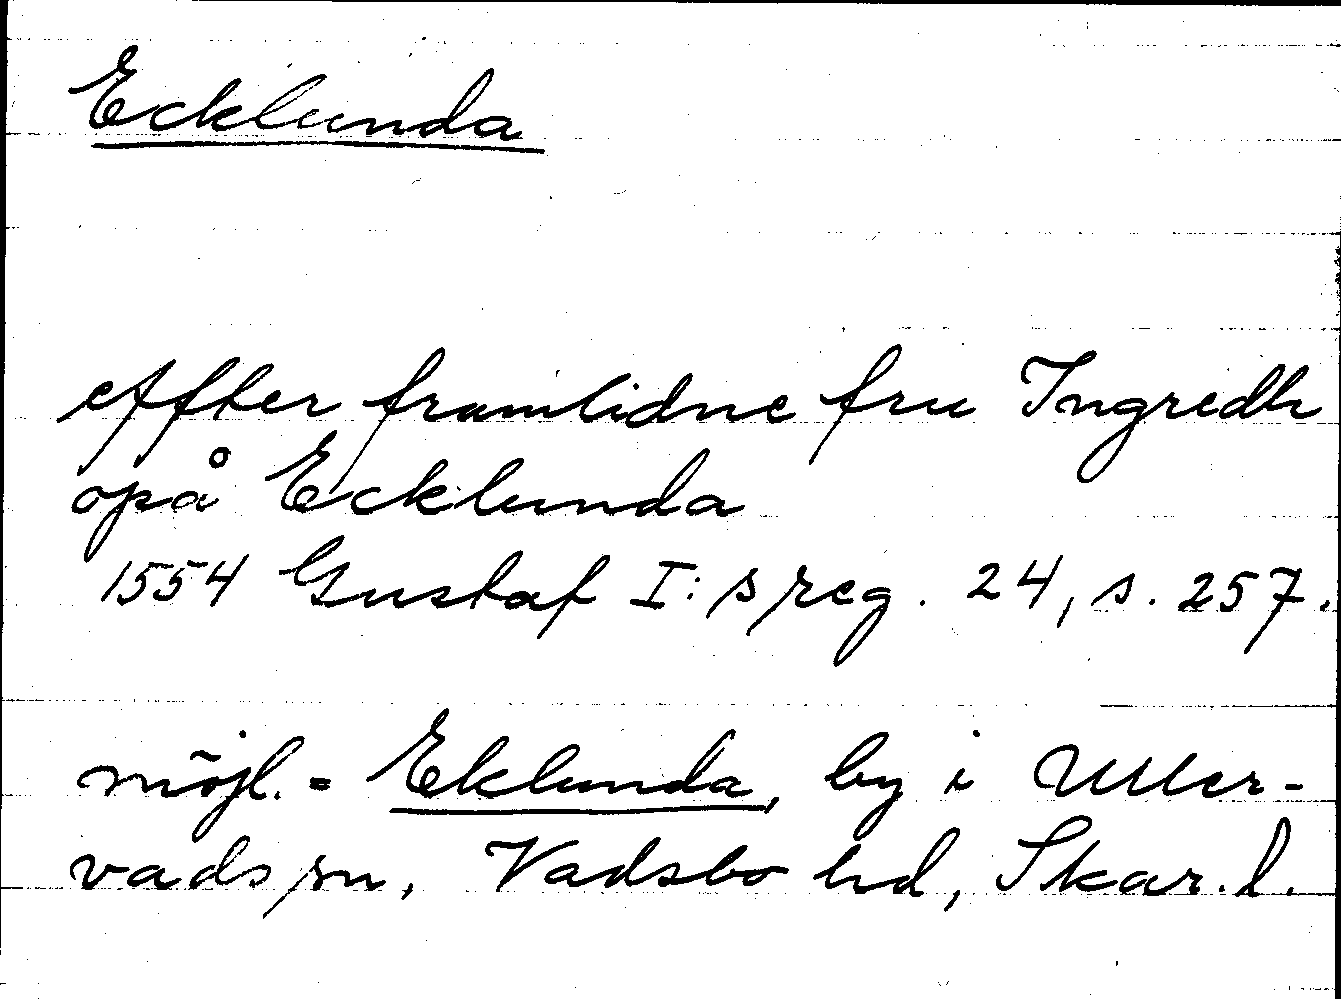 Ecklunda
effter framlidne fru Ingredh
opå Ecklunda
1554 Gustaf I:s reg. 24, s. 257.
möjl. = Eklunda, by i Uller-
vads sn, Vadsbo hd, Skar. l.